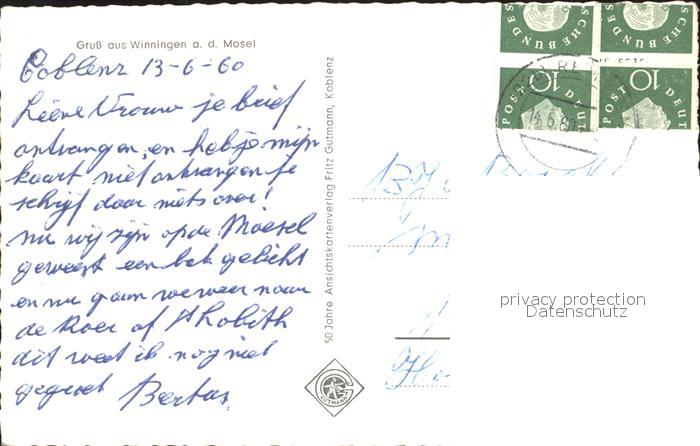 Gruß aus Winningen a. d. Mosel
Coblenz 13-6-60
Lieve Vrouw je brief
ontvangen, en heb je mijn
kaart niet ontvangen je
schrijf daar niets over!
nu wij zijn op de Moesel
geweest een bak gelicht
en nu gaan we weer naar
de Roer of Lhobith
dit weet ik nog niet
gegroet Bertus,
50 Jahre Ansichtskartenverlag Fritz Gutmann, Koblenz
GUTMANN
SCHE BUNDES
SCHE BUNDES
10
POST
DEUT
10
POST
DEUT
privacy protection
Datenschutz